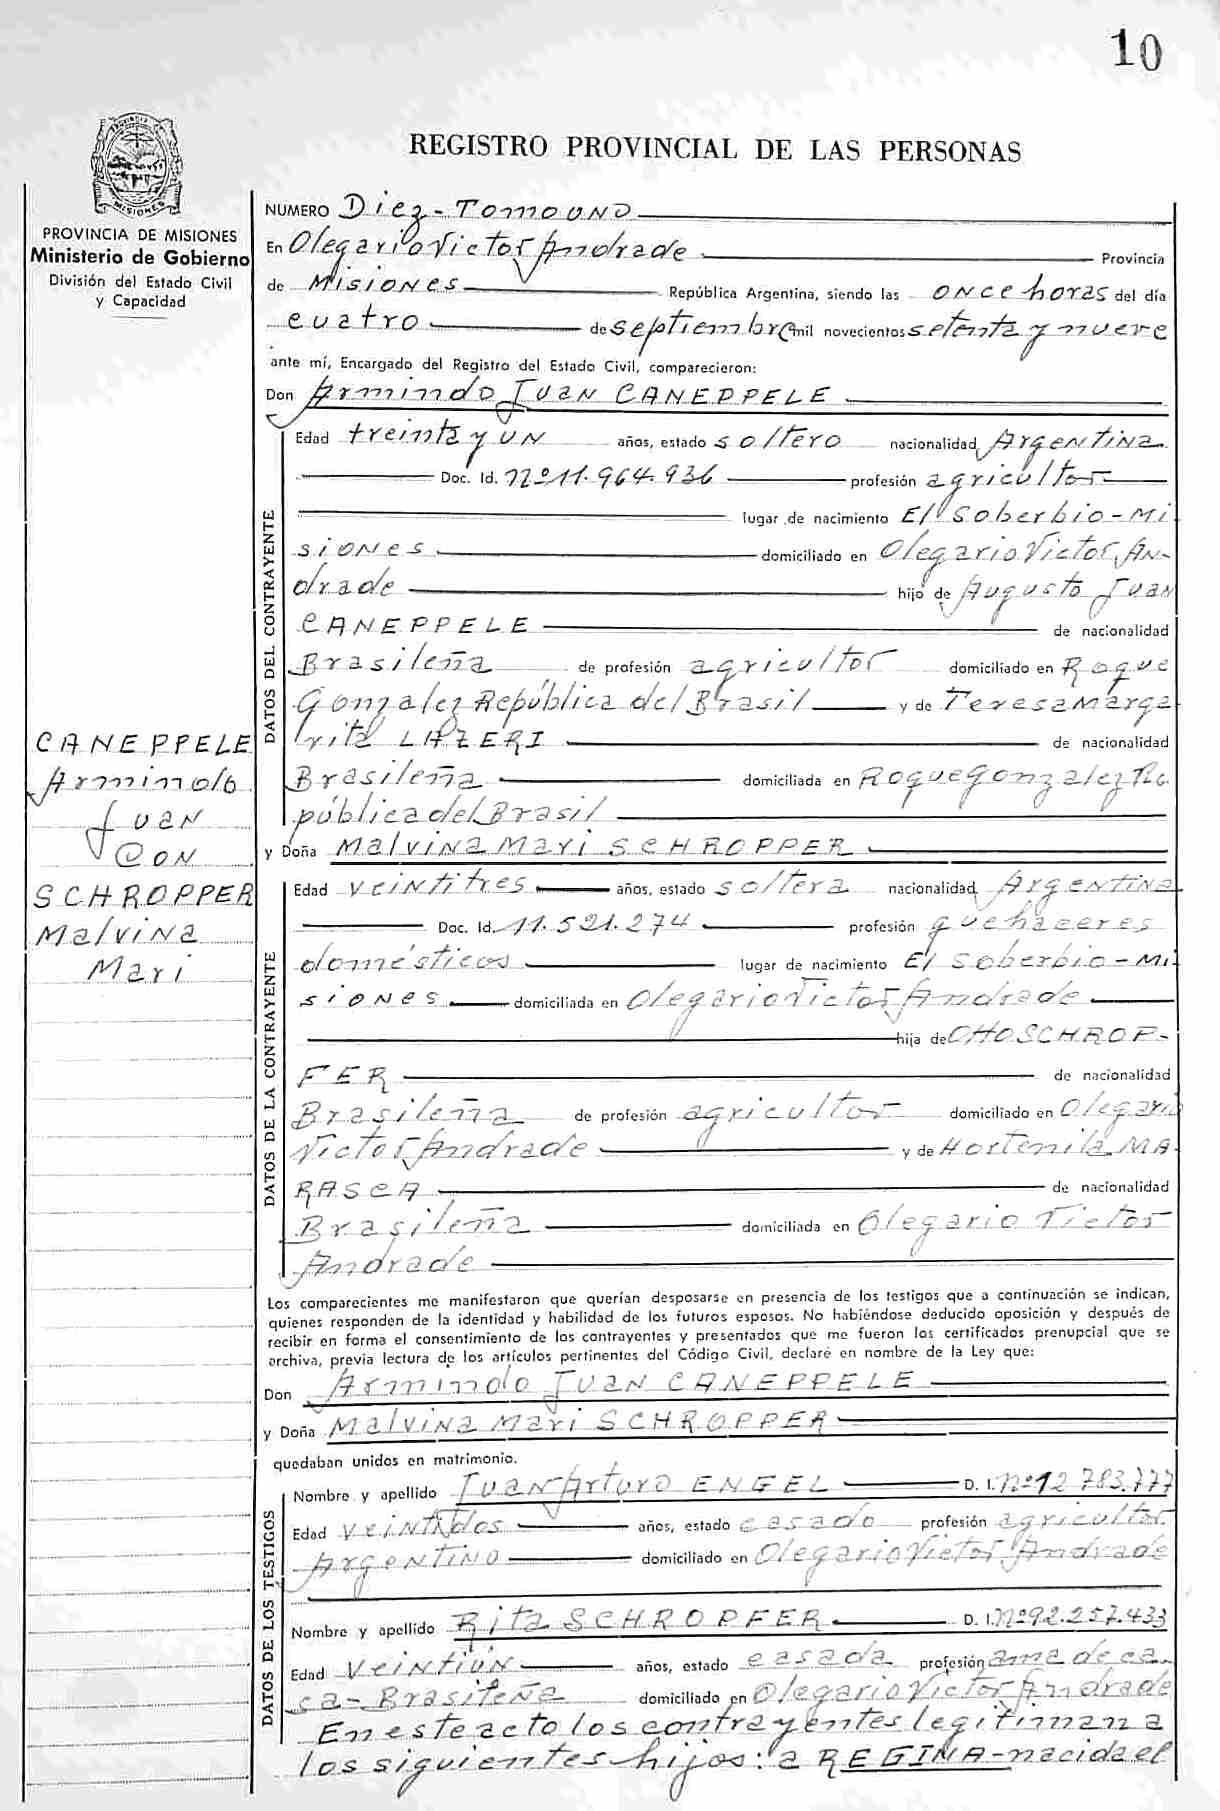 10
PROVINCIA
MISIONES
REGISTRO PROVINCIAL DE LAS PERSONAS
PROVINCIA DE MISIONES
Ministerio de Gobierno
División del Estado Civil
y Capacidad
CANEPPELE
Armindo
Juan
CON
SCHROPPER
Malvina
Mari
NUMERO Diez - Tomo UNO
En Olegario Victor Andrade Provincia
de Misiones República Argentina, siendo las once horas del día
cuatro de septiembre mil novecientos setenta y nueve
ante mí, Encargado del Registro del Estado Civil, comparecieron:
Don Armindo Juan CANEPPELE
DATOS DEL CONTRAYENTE
Edad treinta y un años, estado soltero nacionalidad Argentina
Doc. Id. nº 11.964.936 profesión agricultor
lugar de nacimiento El Soberbio - Mi
siones domiciliado en Olegario Victor An-
drade hijo de Augusto Juan
CANEPPELE de nacionalidad
Brasileña de profesión agricultor domiciliado en Roque
Gonzalez República del Brasil y de Teresa Marga
rita LAZERI de nacionalidad
Brasileña domiciliada en Roque Gonzalez Re
pública del Brasil
y Doña Malvina Mari SCHROPPER
DATOS DE LA CONTRAYENTE
Edad veintitres años, estado soltera nacionalidad Argentina
Doc. Id. 11.521.274 profesión quehaceres
domésticos lugar de nacimiento El Soberbio - Mi
siones domiciliada en Olegario Victor Andrade
hija de Otto SCHROP-
FER de nacionalidad
Brasileña de profesión agricultor domiciliado en Olegario
Victor Andrade y de Hortenila MA
RASCA de nacionalidad
Brasileña domiciliada en Olegario Victor
Andrade
Los comparecientes me manifestaron que querían desposarse en presencia de los testigos que a continuación se indican,
quienes responden de la identidad y habilidad de los futuros esposos. No habiéndose deducido oposición y después de
recibir en forma el consentimiento de los contrayentes y presentados que me fueron los certificados prenupcial que se
archiva, previa lectura de los artículos pertinentes del Código Civil, declaré en nombre de la Ley que:
Don Armindo Juan CANEPPELE
y Doña Malvina Mari SCHROPPER
quedaban unidos en matrimonio.
DATOS DE LOS TESTIGOS
Nombre y apellido Juan Arturo ENGEL D. I. nº 12.783.777
Edad veintidos años, estado casado profesión agricultor
Argentino domiciliado en Olegario Victor Andrade
Nombre y apellido Rita SCHROPFER D. I. nº 92.257.433
Edad veintiún años, estado casada profesión ama de ca
sa - Brasileña domiciliado en Olegario Victor Andrade
En este acto los contrayentes legitiman a
los siguientes hijos: a REGINA - nacida el